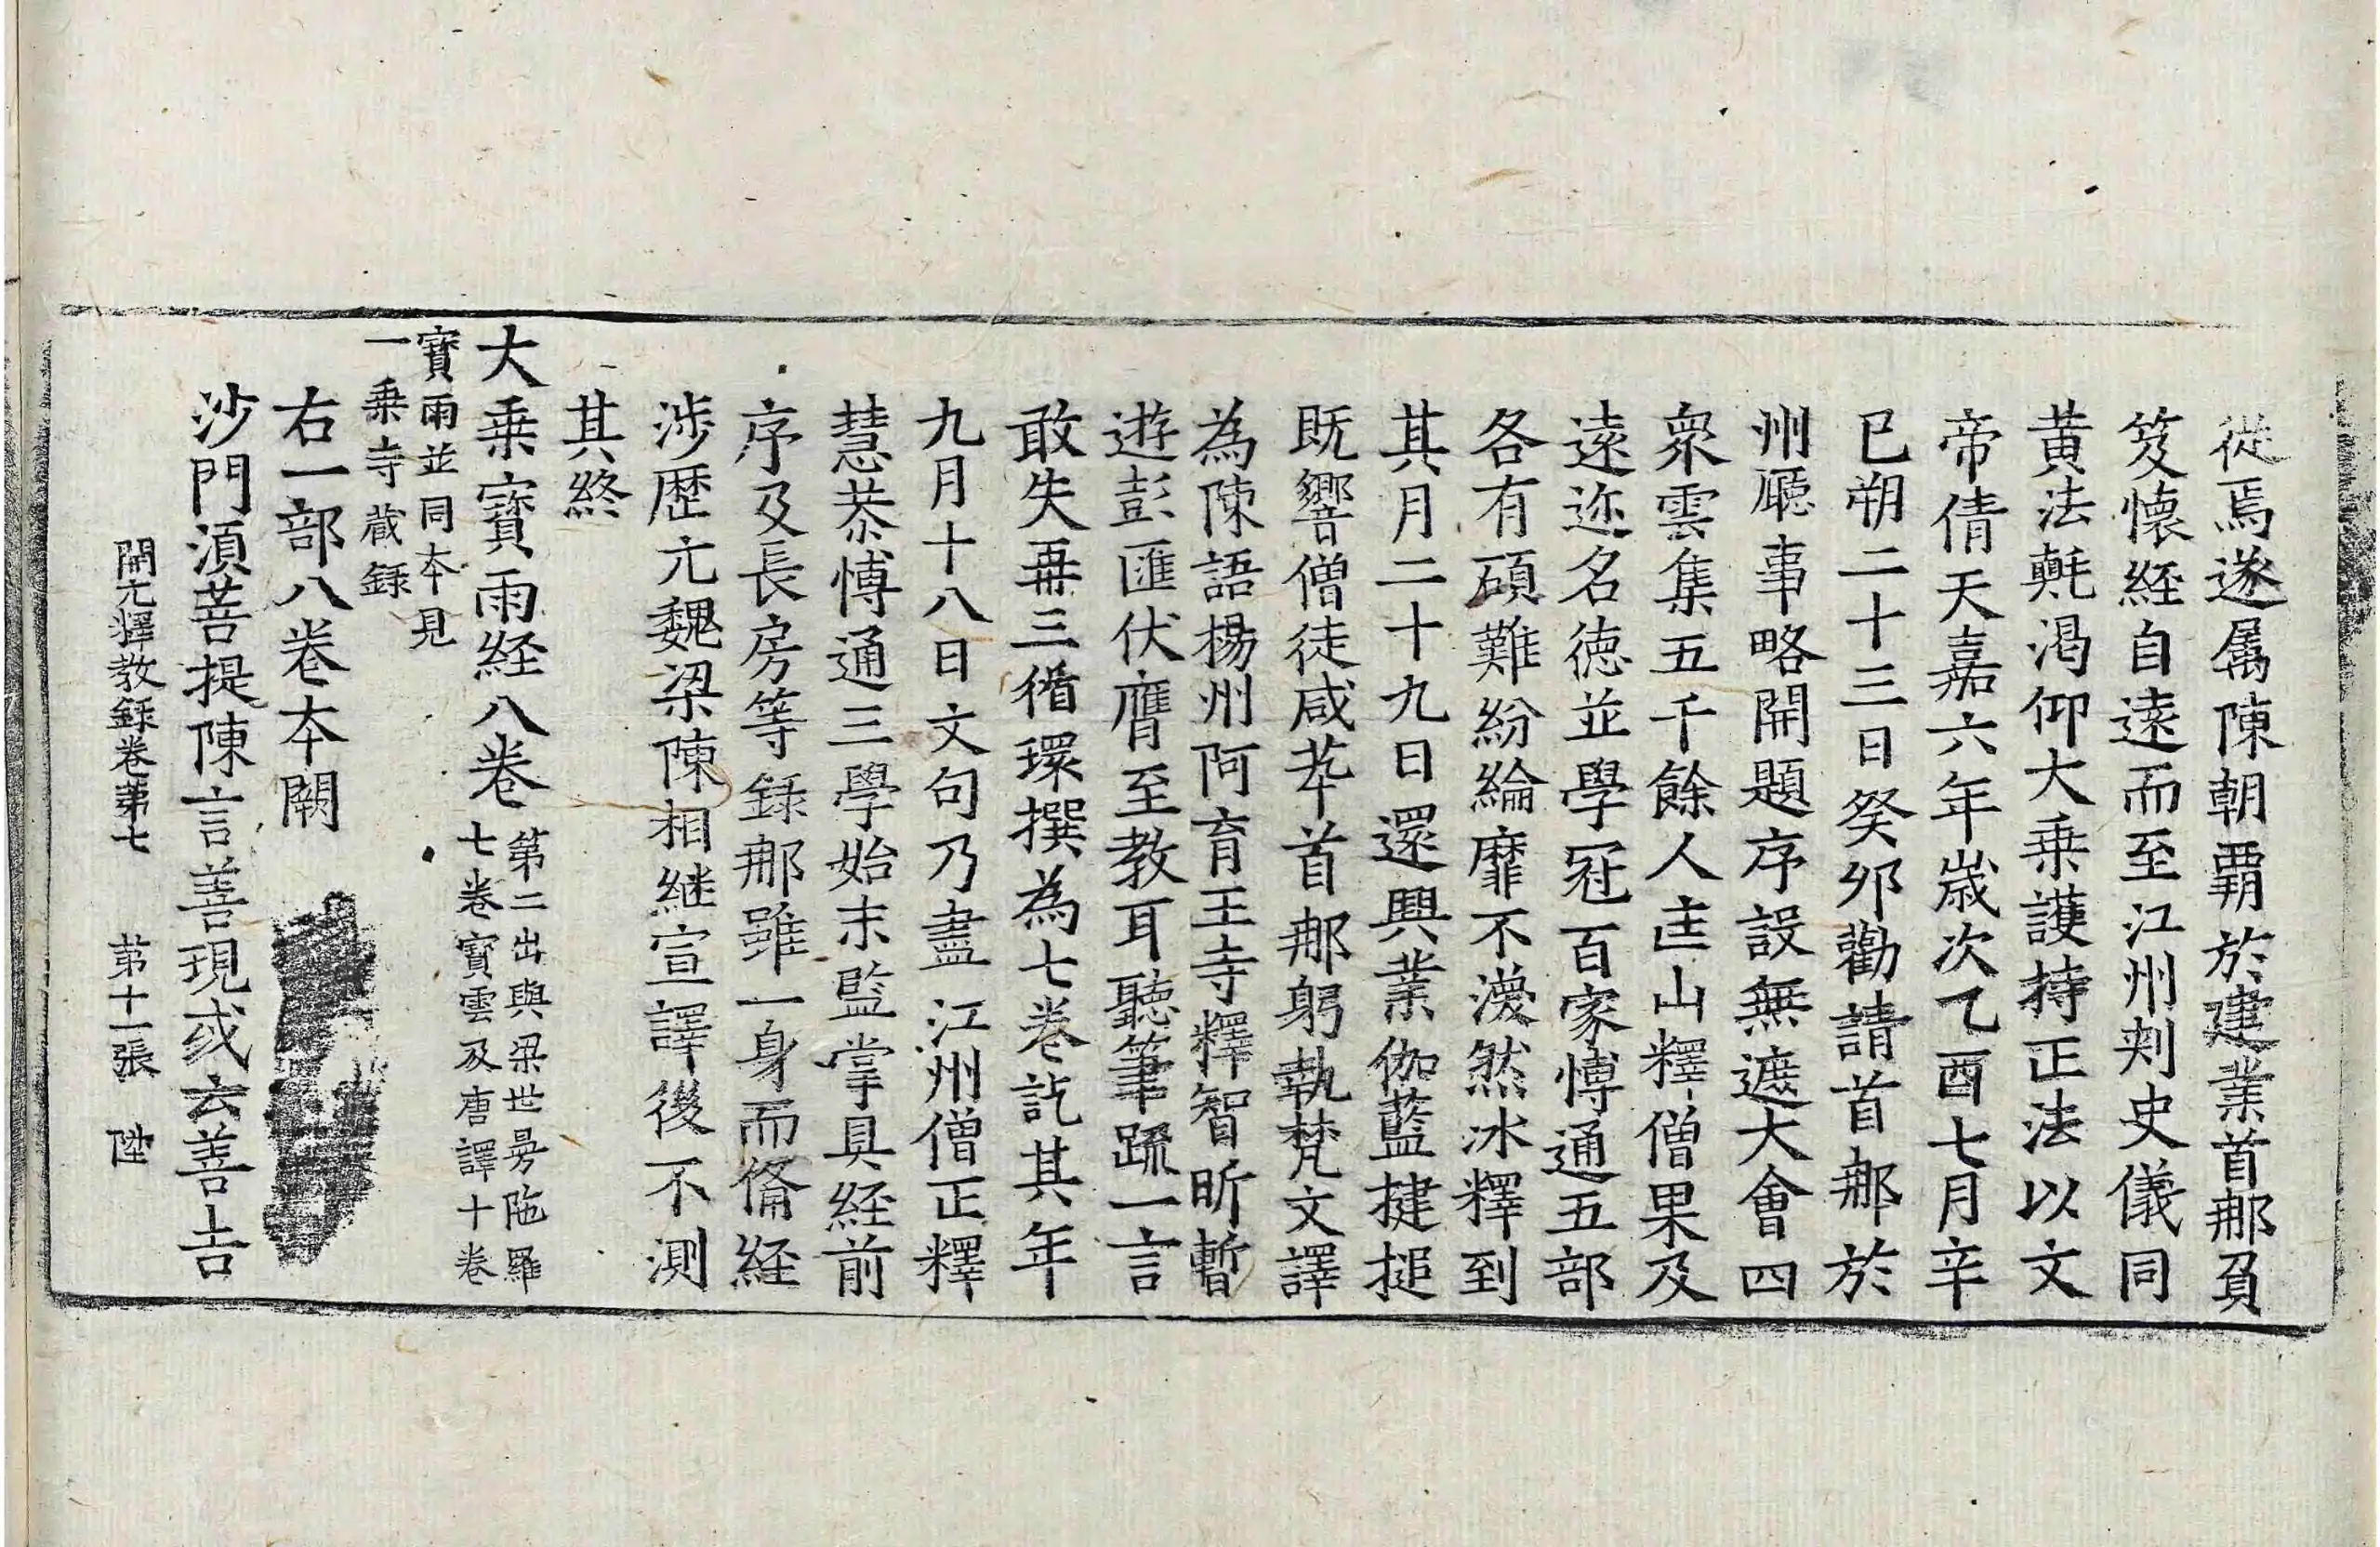 從焉遂属陳朝覇於建業首那負
笈懷経自遠而至江州刾史儀同
黄法𣰰渇仰大乗護持正法以文
帝倩天嘉六年歳次乙酉七月辛
巳朔二十三日癸夘勸請首那於
州廳事略開題序設無遮大會四
衆雲集五千餘人𠥻山釋僧果及
遠迩名徳並學冠百家愽通五部
各有碩難紛綸靡不渙然冰釋到
其月二十九日還興業伽藍揵搥
既響僧徒咸萃首那躬執梵文譯
為陳語楊州阿育王寺釋智昕暫
遊彭匯伏膺至教耳聽筆疏一言
敢失再三循環撰為七卷訖其年
九月十八日文句乃盡江州僧正釋
慧恭愽通三學始末監掌具経前
序及長房等録那雖一身而俻経
渉歴亢魏梁陳相継宣譯後不測
其終
大乗寳雨経八卷
第二出與梁世曼陁羅
七卷寳雲及唐譯十卷
寳雨並同本見
一乗寺蔵録
右一部八卷本闕
沙門湏菩提陳言善現或云善吉
開元釋教録卷第七 第十一張 陞